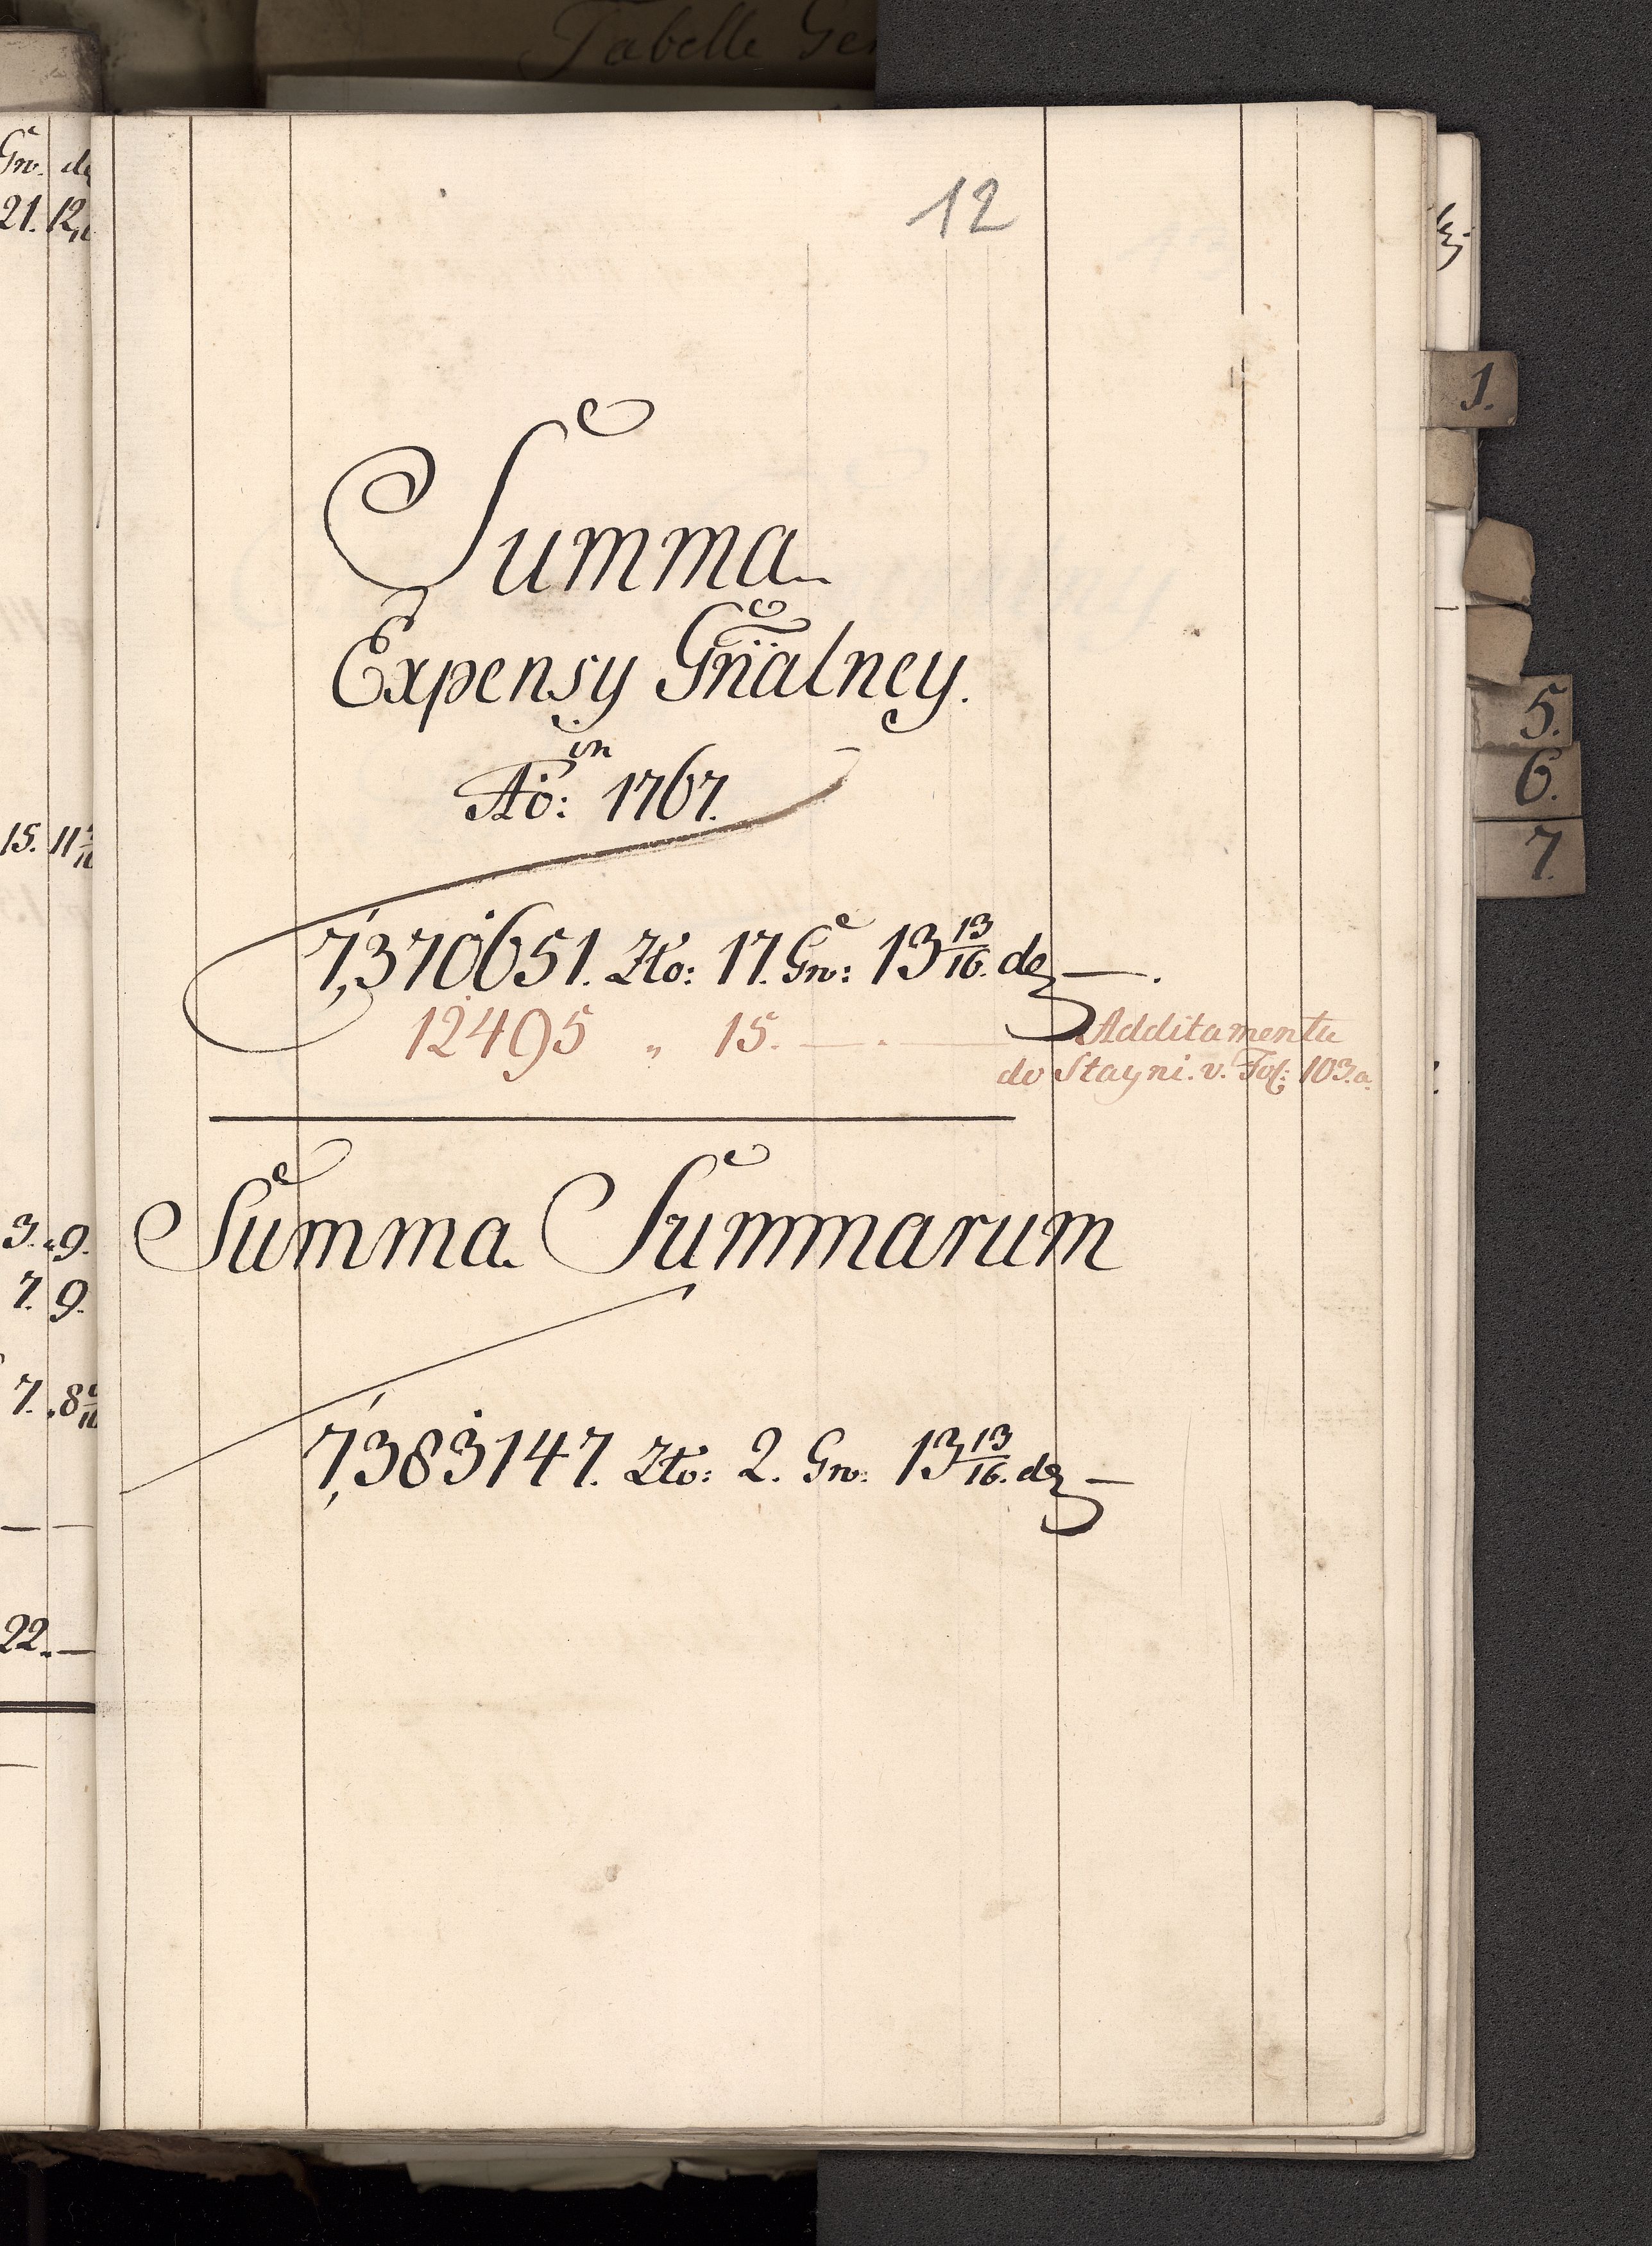 Tabelle Gen
Gro. de
21. 12
15. 11
3. 9.
7. 9.
7. 8
22. —
12
Summa
Expensy Gñalney.
in
Ao: 1767.
7,370651. Zło: 17. Gro: 13 13/16. de —.
12495 „ 15. — . — Additamentu
do Stayni. v. Fol: 103.a.
Summa Summarum
7,383147. Zło: 2. Gro: 13 13/16. de —
1.
5.
6.
7.